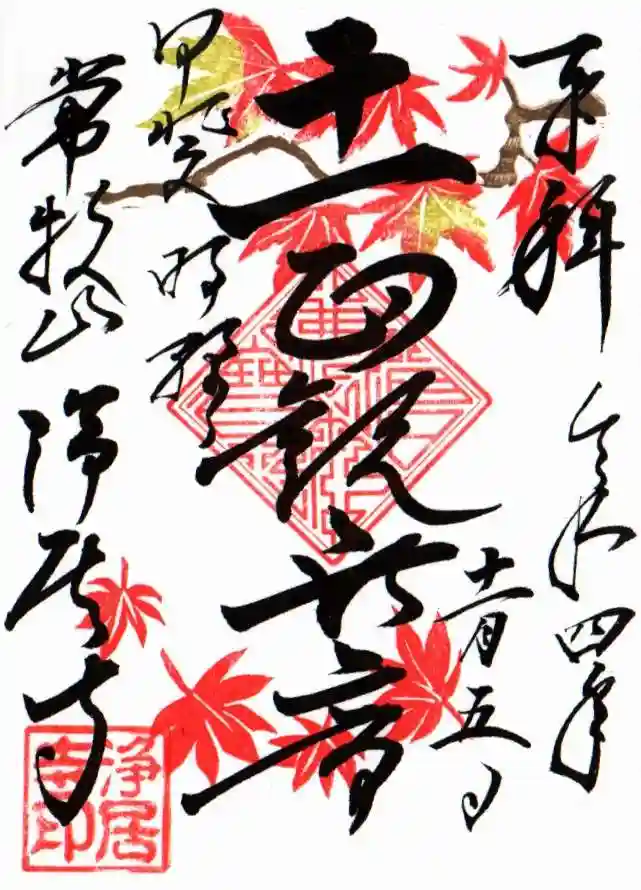 奉拝 令和四年
十一月五日
十一面観世音
甲斐
常牧山 浄居寺
浄居寺印